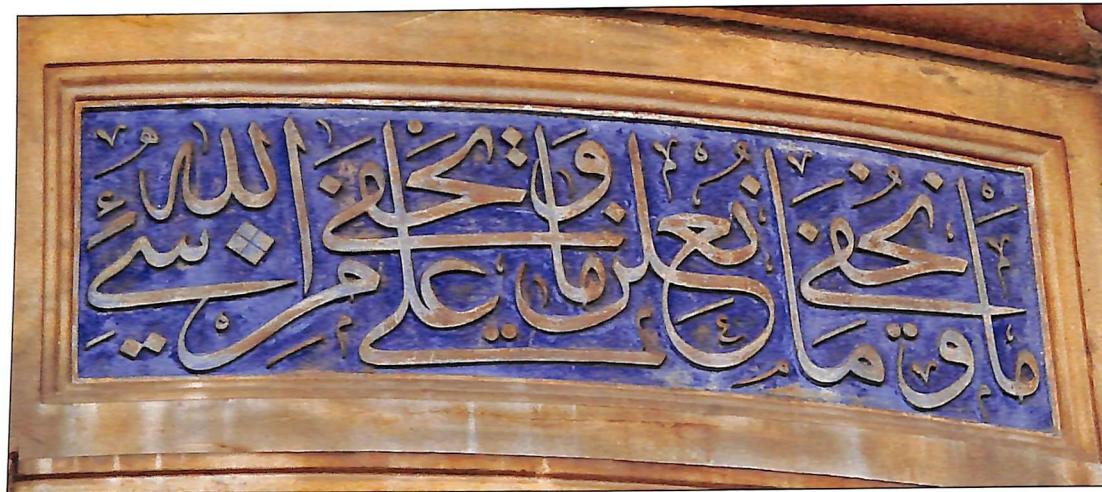 ما نخفي وما نعلن وما يخفى على الله من شيء